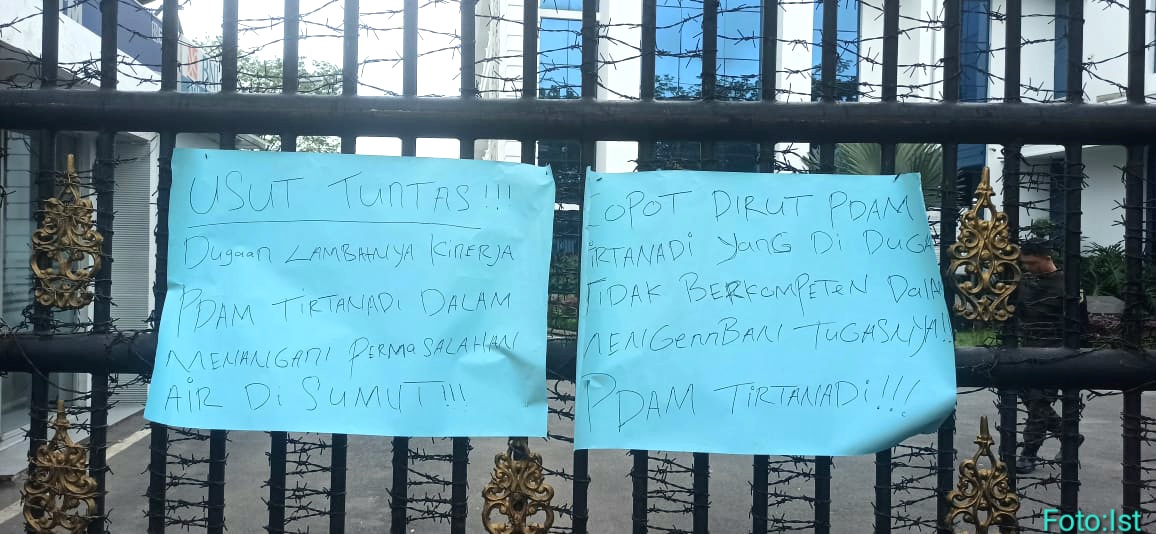 USUT TUNTAS!!!
Dugaan LAMBATNYA KINERJA
PDAM TIRTANADI DALAM
MENANGANI PERMASALAHAN
AIR DI SUMUT!!!
COPOT DIRUT PDAM
TIRTANADI yANG Di DUGA
TIDAK BERKOMPETEN DALAM
MENGEMBANI TUGASNYA!!
PDAM TIRTANADI!!!
Foto:Ist